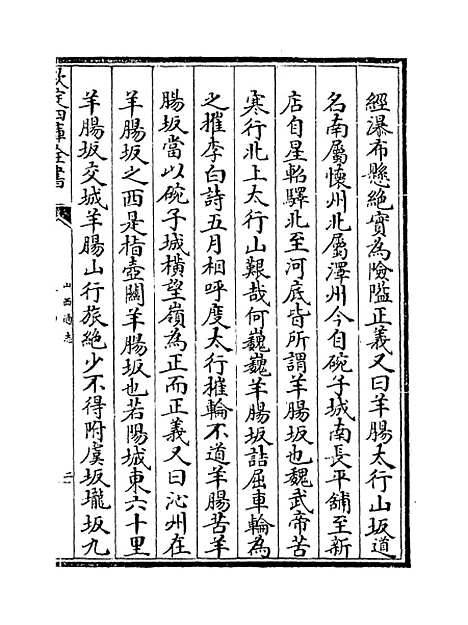 經瀑布懸絶實為險隘正義又曰羊腸太行山坂道
名南屬懷州北屬澤州今自碗子城南長平舖至新
店自星軺驛北至河底皆所謂羊腸坂也魏武帝苦
寒行北上太行山艱哉何巍巍羊腸坂詰屈車輪為
之摧李白詩五月相呼度太行摧輪不道羊腸苦羊
腸坂當以碗子城橫望嶺為正而正義又曰沁州在
羊腸坂之西是指壺關羊腸坂也若陽城東六十里
羊腸坂交城羊腸山行旅絶少不得附虞坂瓏坂九
欽定四庫全書
山西通志
二